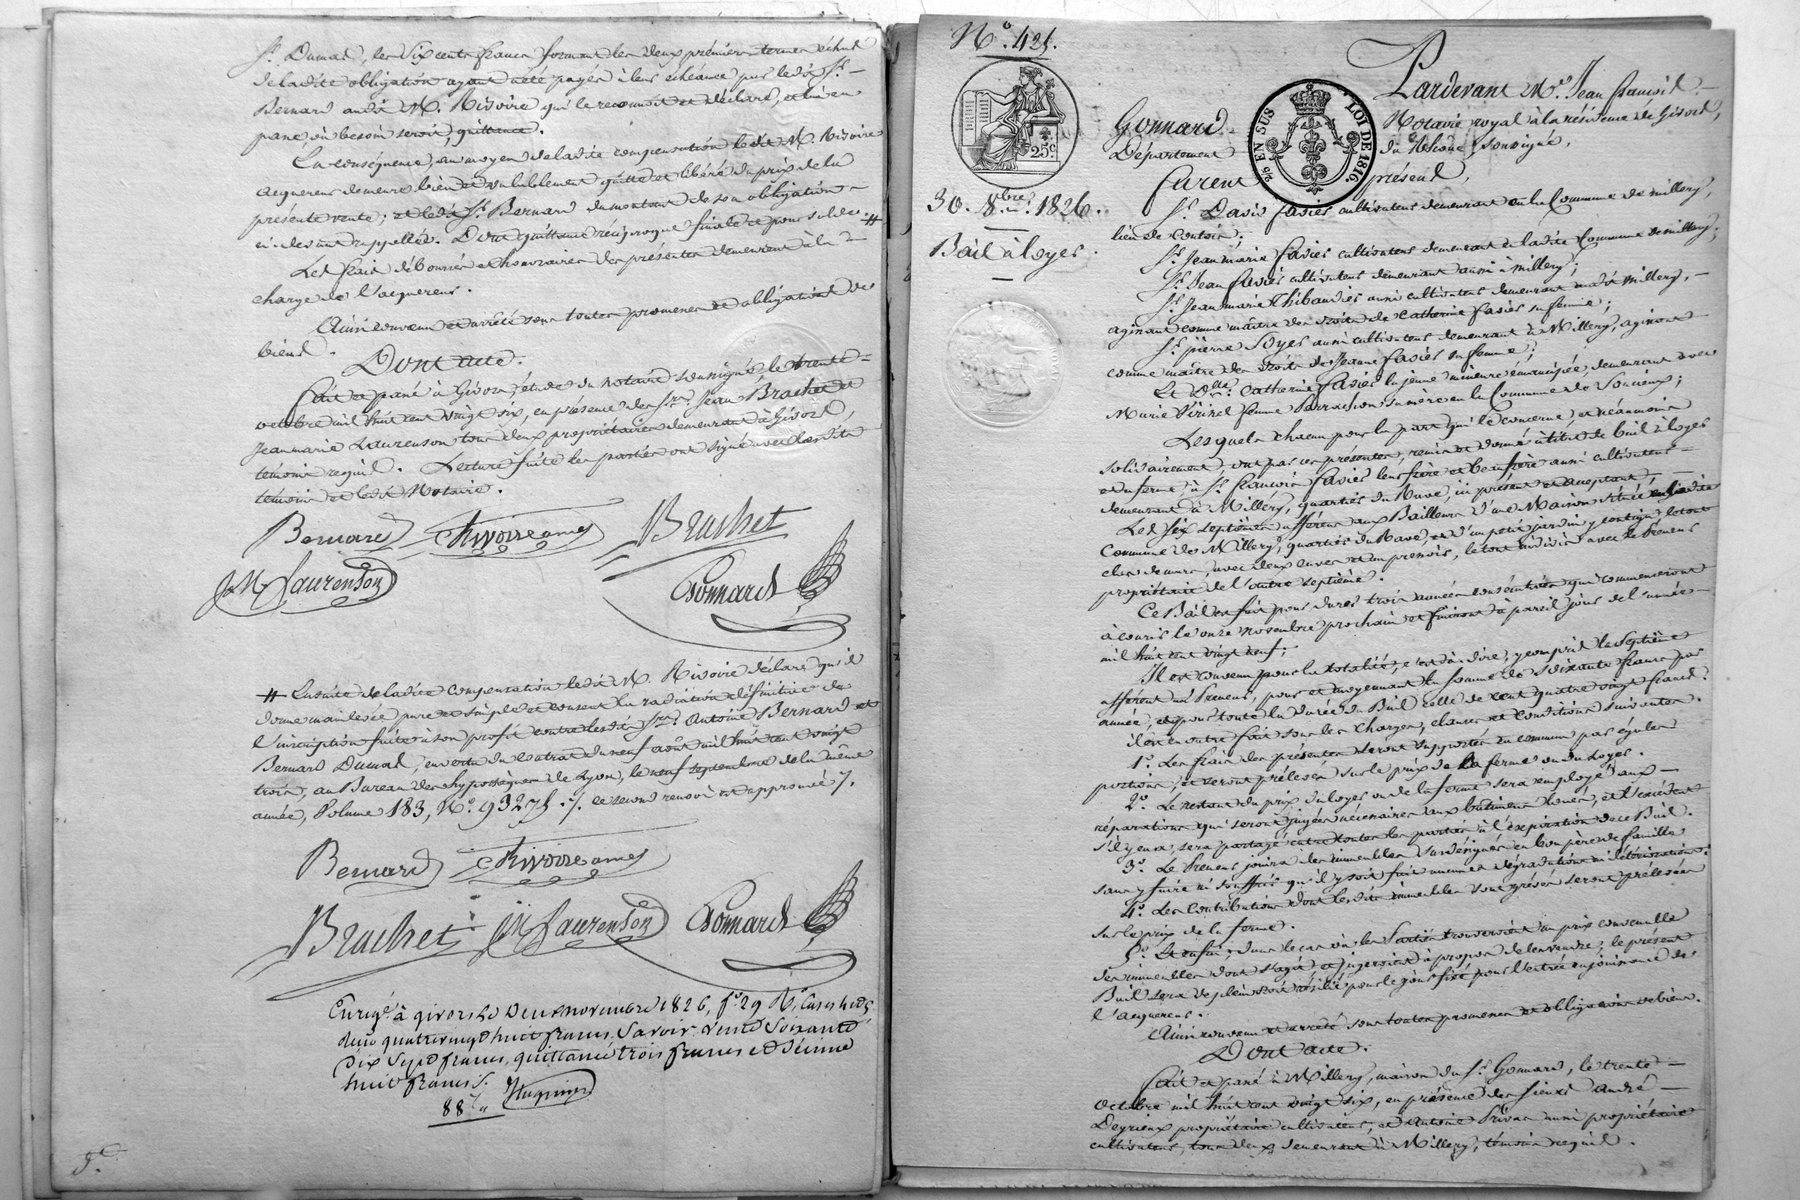 Sr. Dumas, les Six cents francs formant les deux prémiers termes échus
de ladite obligation ayant été payés à leur échéance par ledit Sr. –
Bernard audit M. Rivoire qui le reconnait et déclare, et lui en
passe, si besoin seroit, quittance.
En conséquence, au moyen de ladite compensation ledit M. Rivoire
acquereur demeure bien et valablement quitte et libéré du prix de la
présente vente; et ledit Sr. Bernard du montant de son obligation –
ci-devant rappellée. Dont quittance reciproque finale et pour solde. #
Les frais déboursés et honoraires des présentes demeurent à la
charge de l'acquereur.
Ainsi convenu et arrêté sous toutes promesses et obligations de
biens.
Dont acte.
Fait et passé à Givors, étude du notaire soussigné le trente =
octobre mil huit cent vingt six, en présence des Srs. Jean Brachet et
Jeanmarie Laurenson tous deux propriétaires demeurant à Givors,
temoins requis. Lecture faite les parties ont signé avec lesdits
temoins et ledit Notaire.
Bernard Rivoire ainé Brachet
JM Laurenson Gonnard
# Ensuite de ladite compensation ledit M. Rivoire déclare qu'il
donne mainlevée pure et simple et consent la radiation définitive de
l'inscription faite à son profit contre lesdits Srs. Antoine Bernard et
Bernard Dumas, en vertu du contrat du neuf août mil huit cent vingt
trois, au Bureau des hypothèques de Lyon, le neuf septembre de la même
année, Volume 183, No. 93275. /. ce second renvoi est approuvé /.
Bernard Rivoire ainé
Brachet JM Laurenson Gonnard
Enregé. à givors le Deux novembre 1826, fo. 29 Ro. Cases
reçu quatrevingt huit francs, Savoir vente Soixante
Dix Sept francs, quittance trois francs et Décime
huit francs.
88 f "
No. 425.
25 c.
25 EN SUS LOI DE 1816.
30. 8bre. 1826.
Bail à loyer.
Pardevant Me. Jean françois –
Gonnard Notaire royal à la résidence de Givors,
Département du Rhône, soussigné,
furent présens,
Sr. David favier cultivateur demeurant en la Commune de millery,
lieu de
Sr. Jeanmarie favier cultivateur demeurant en ladite Commune de millery;
Sr. Jean favier cultivateur demeurant aussi à millery;
Sr. Jeanmarie Thibaudier aussi cultivateur demeurant audit millery, –
agissant comme maître des droits de Catherine favier sa femme;
Sr. pierre Loyer aussi cultivateur demeurant à Millery, agissant
comme maître des droits de Jeanne favier sa femme;
Et Dlle. Catherine favier la jeune mineure émancipée, demeurant avec
Marie Virisel femme Perrachon sa mère en la Commune de Soucieux;
Lesquels chacun pour la part qui le concerne, et néanmoins
solidairement, ont par ces présentes, remis et donné à titre de bail à loyer
et de ferme à Sr. françois favier leur frère et beaufrère aussi cultivateur –
demeurant à Millery, quartier du Mave, ici présent et acceptant;
Les six septièmes afférens aux Bailleurs d'une Maison située en ladite
Commune de Millery, quartier du Mave, et d'un petit jardin y contigu le tout
clos de murs, avec deux cuves et un pressoir, le tout indivis avec le preneur
propriétaire de l'autre septième.
Ce Bail est fait pour durer trois années consécutives qui commenceront
à courir le onze novembre prochain et finiront à pareil jour de l'année –
mil huit cent vingt neuf;
Il est convenu pour la totalité, c'est à dire, y compris le septième
afférent au Preneur, pour et moyennant la somme de soixante francs par
année, et pour toute la durée du Bail celle de cent quatre vingt francs.
il est en outre fait sous les charges, clauses et conditions suivantes.
1o. Les frais des présentes seront supportés en commun par égales
portions, et seront prélevés sur le prix de la ferme ou du loyer.
2o. Le restant du prix du loyer ou de la ferme sera employé aux –
réparations qui seront jugées nécessaires aux bâtimens loués, et l'excédent
s'il y en a, sera partagé entre toutes les parties à l'expiration de ce Bail.
3o. Le Preneur jouira des immeubles susdésignés en bon père de famille
sans y faire ni souffrir qu'il y soit fait aucunes dégradations ni détériorations.
4o. Les contributions dont lesdits immeubles sont grevés seront prélevées
sur le prix de la ferme.
5o. Et enfin, dans le cas où les Parties trouveroient un prix convenable
des immeubles dont s'agit, et jugeroient à propos de les vendre, le présent
Bail sera de plein droit résilié pour le jour fixé pour l'entrée en jouissance de
l'acquereur.
Ainsi convenu et arrêté sous toutes promesses et obligations de biens.
Dont acte.
Fait et passé à Millery, maison du Sr. Gonnard, le trente –
octobre mil huit cent vingt six, en présence des sieurs André –
Deyrieux propriétaire cultivateur, et Antoine Privas aussi propriétaire
cultivateur, tous deux demeurant à Millery, témoins requis.